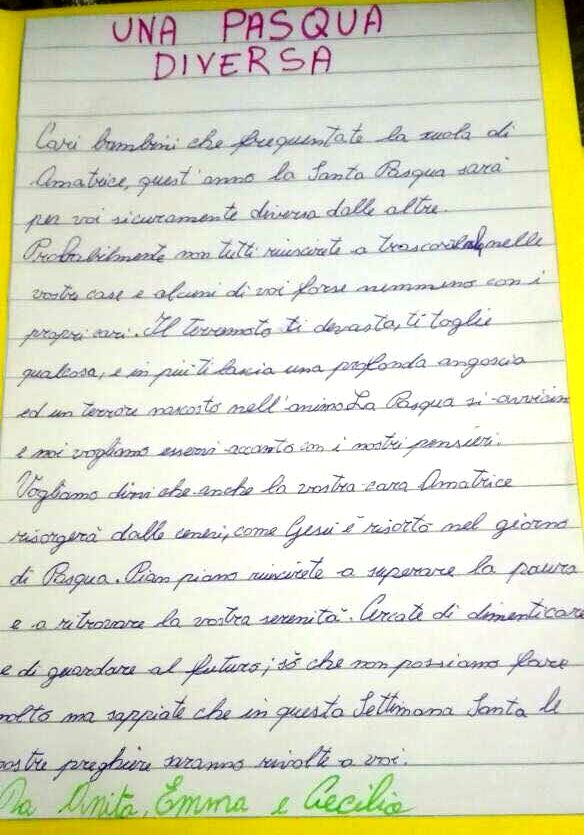 UNA PASQUA
DIVERSA
Cari bambini che frequentate la scuola di
Amatrice, quest'anno la Santa Pasqua sarà
per voi sicuramente diversa dalle altre.
Probabilmente non tutti riuscirete a trascorrerla nelle
vostre case e alcuni di voi forse nemmeno con i
propri cari. Il terremoto ti devasta, ti toglie
qualcosa, e in più ti lascia una profonda angoscia
ed un terrore nascosto nell'animo. La Pasqua si avvicina
e noi vogliamo esservi accanto con i nostri pensieri.
Vogliamo dirvi che anche la vostra cara Amatrice
risorgerà dalle ceneri, come Gesù è risorto nel giorno
di Pasqua. Pian piano riuscirete a superare la paura
e a ritrovare la vostra serenità. Cercate di dimenticare
e di guardare al futuro; sò che non possiamo fare
molto ma sappiate che in questa Settimana Santa le
nostre preghiere saranno rivolte a voi.
Da Anita, Emma e Cecilia